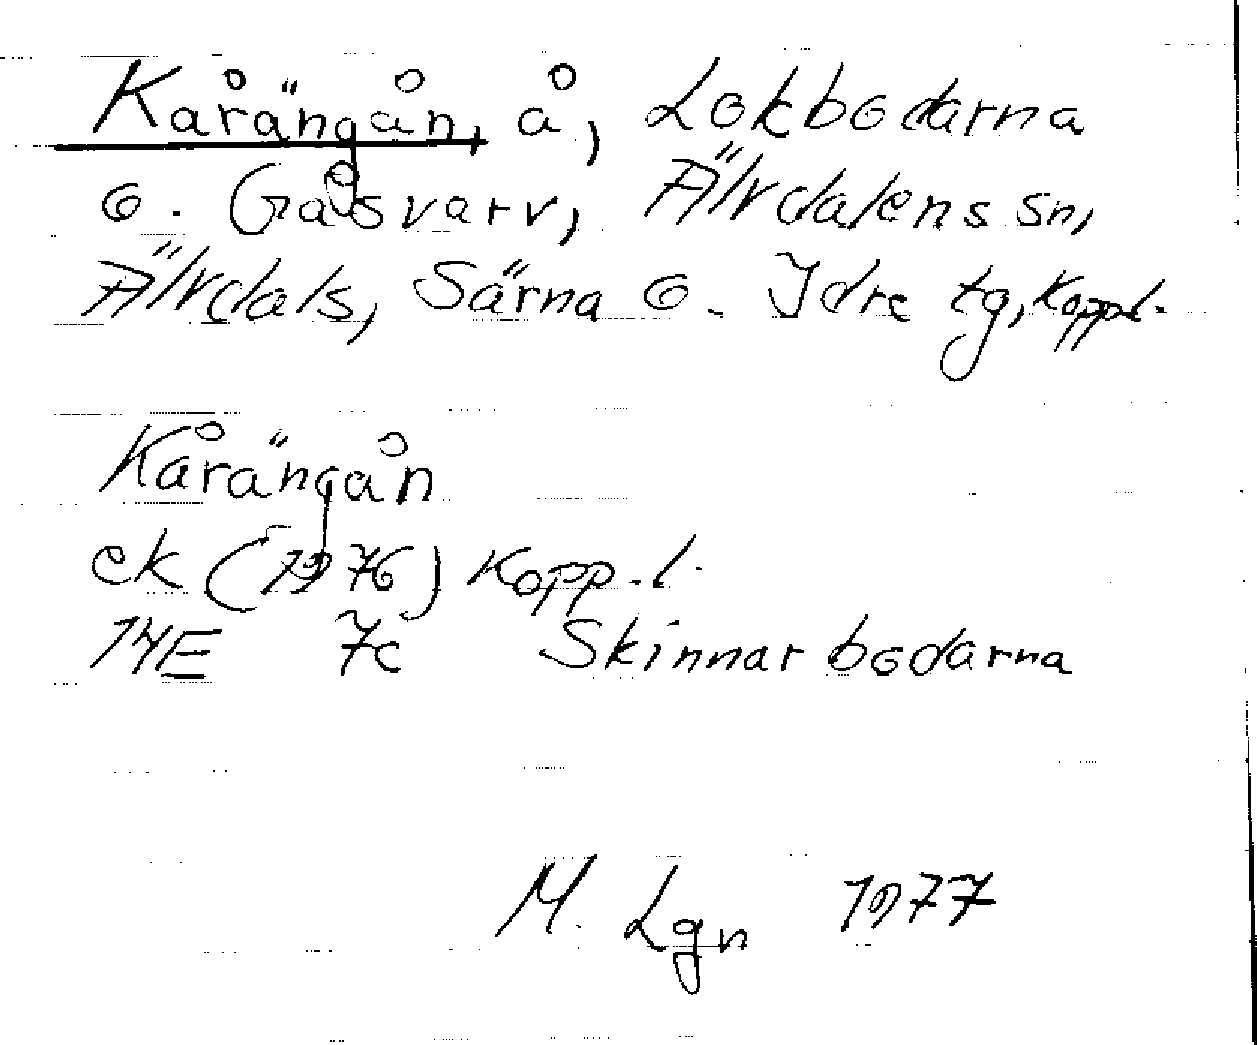 Kårängån, å, Lokbodarna
o. Gåsvarv, Älvdalens sn,
Älvdals, Särna o. Idre tg, Koppl.
Kårängån
ek (1976) Kopp. l.
14E 7c Skinnarbodarna
M. Lgn 1977